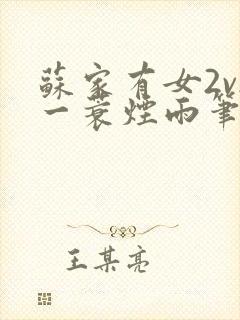 蘇家有女2v
一蓑煙雨筆
王某亮